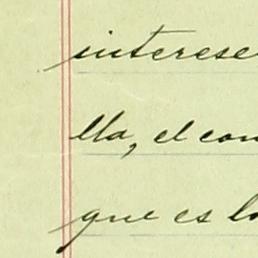 interese
lla, el con
que es lo